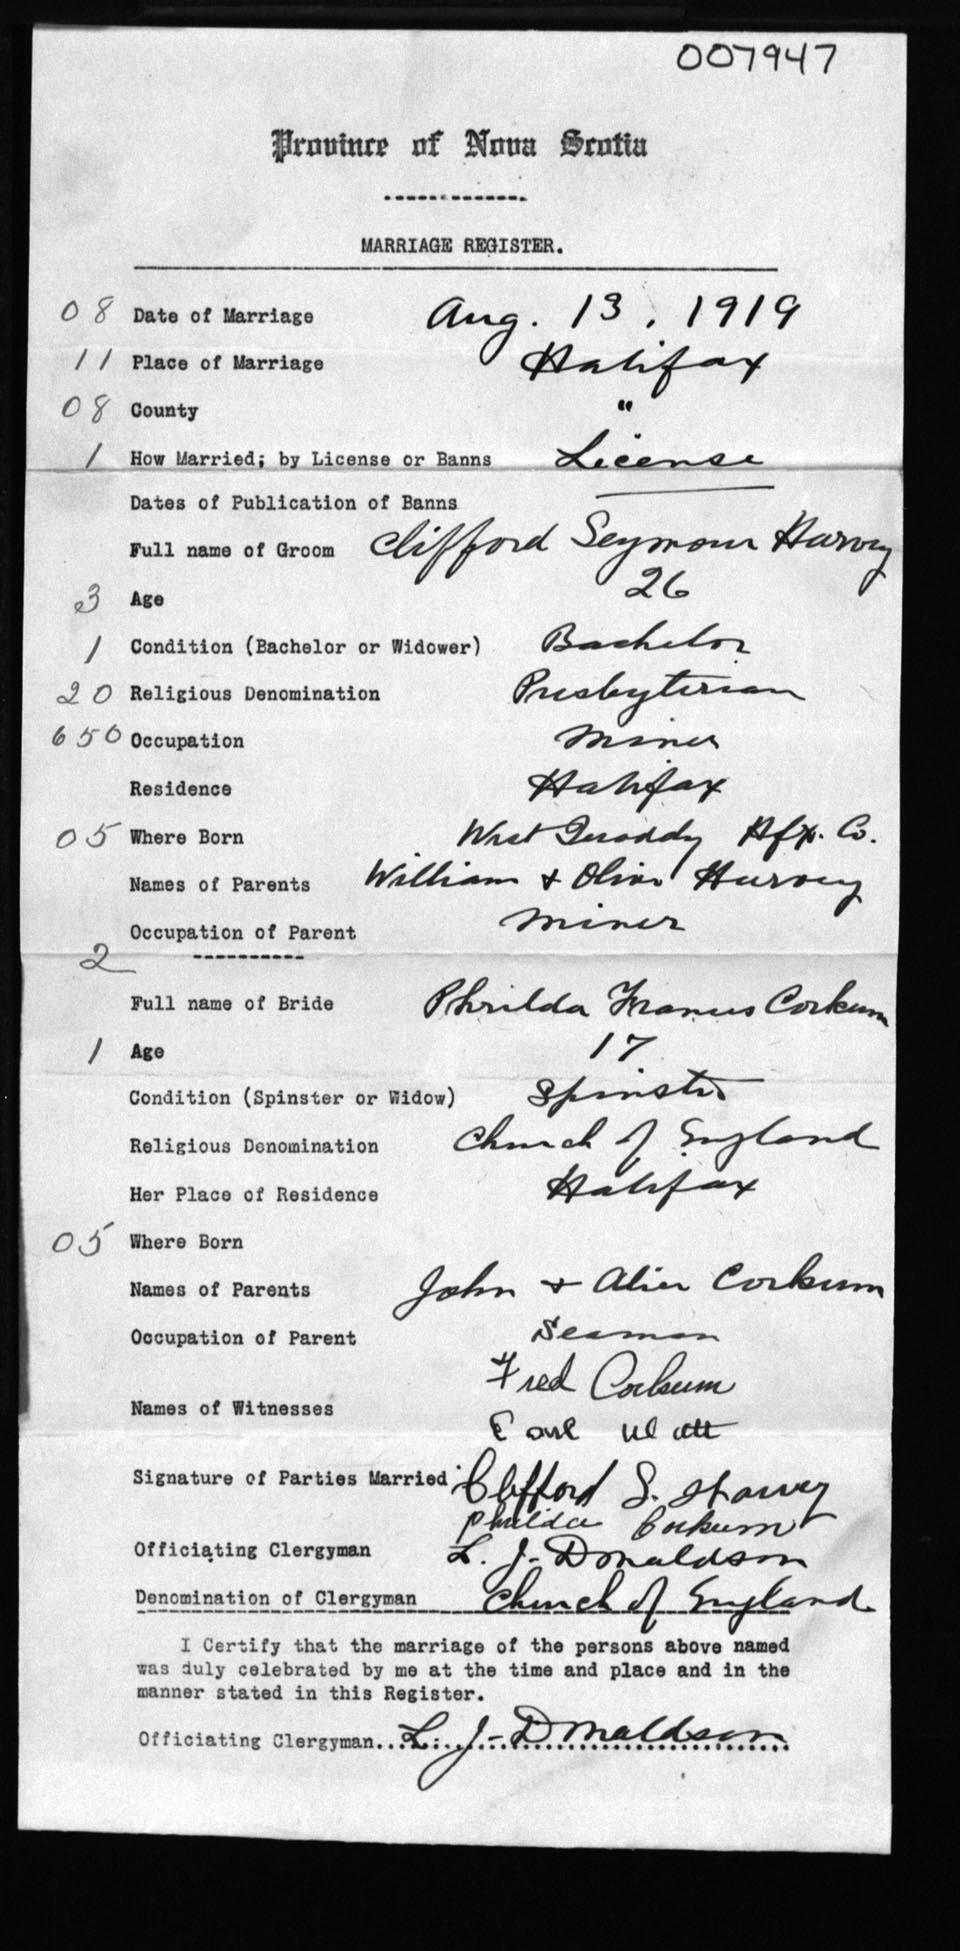 007947
Province of Nova Scotia
MARRIAGE REGISTER.
08 Date of Marriage Aug. 13, 1919
11 Place of Marriage Halifax
08 County "
1 How Married; by License or Banns License
Dates of Publication of Banns
Full name of Groom Clifford Seymour Harvey
3 Age 26
1 Condition (Bachelor or Widower) Bachelor
20 Religious Denomination Presbyterian
650 Occupation Miner
Residence Halifax
05 Where Born West Quoddy Hfx. Co.
Names of Parents William + Olive Harvey
Occupation of Parent Miner
2
Full name of Bride Phrilda Frances Corkum
1 Age 17
Condition (Spinster or Widow) Spinster
Religious Denomination Church of England
Her Place of Residence Halifax
05 Where Born
Names of Parents John + Alice Corkum
Occupation of Parent Seaman
Fred Corkum
Names of Witnesses
Earl Watt
Signature of Parties Married Clifford S. Harvey
Phrilda Corkum
Officiating Clergyman L. J. Donaldson
Denomination of Clergyman Church of England
I Certify that the marriage of the persons above named
was duly celebrated by me at the time and place and in the
manner stated in this Register.
Officiating Clergyman... L. J. Donaldson